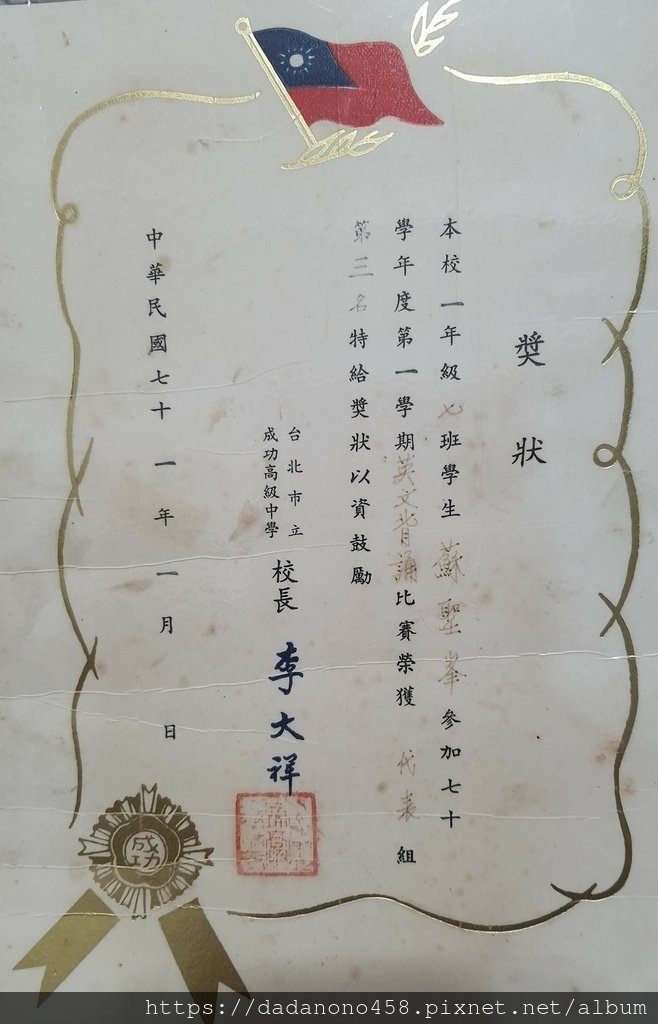 獎狀
本校一年級七班學生蘇聖峯參加七十
學年度第一學期英文背誦比賽榮獲代表組
第三名特給獎狀以資鼓勵
台北市立
成功高級中學
校長 李大祥
中華民國七十一年一月 日
成功
https://dadanono458.pixnet.net/album